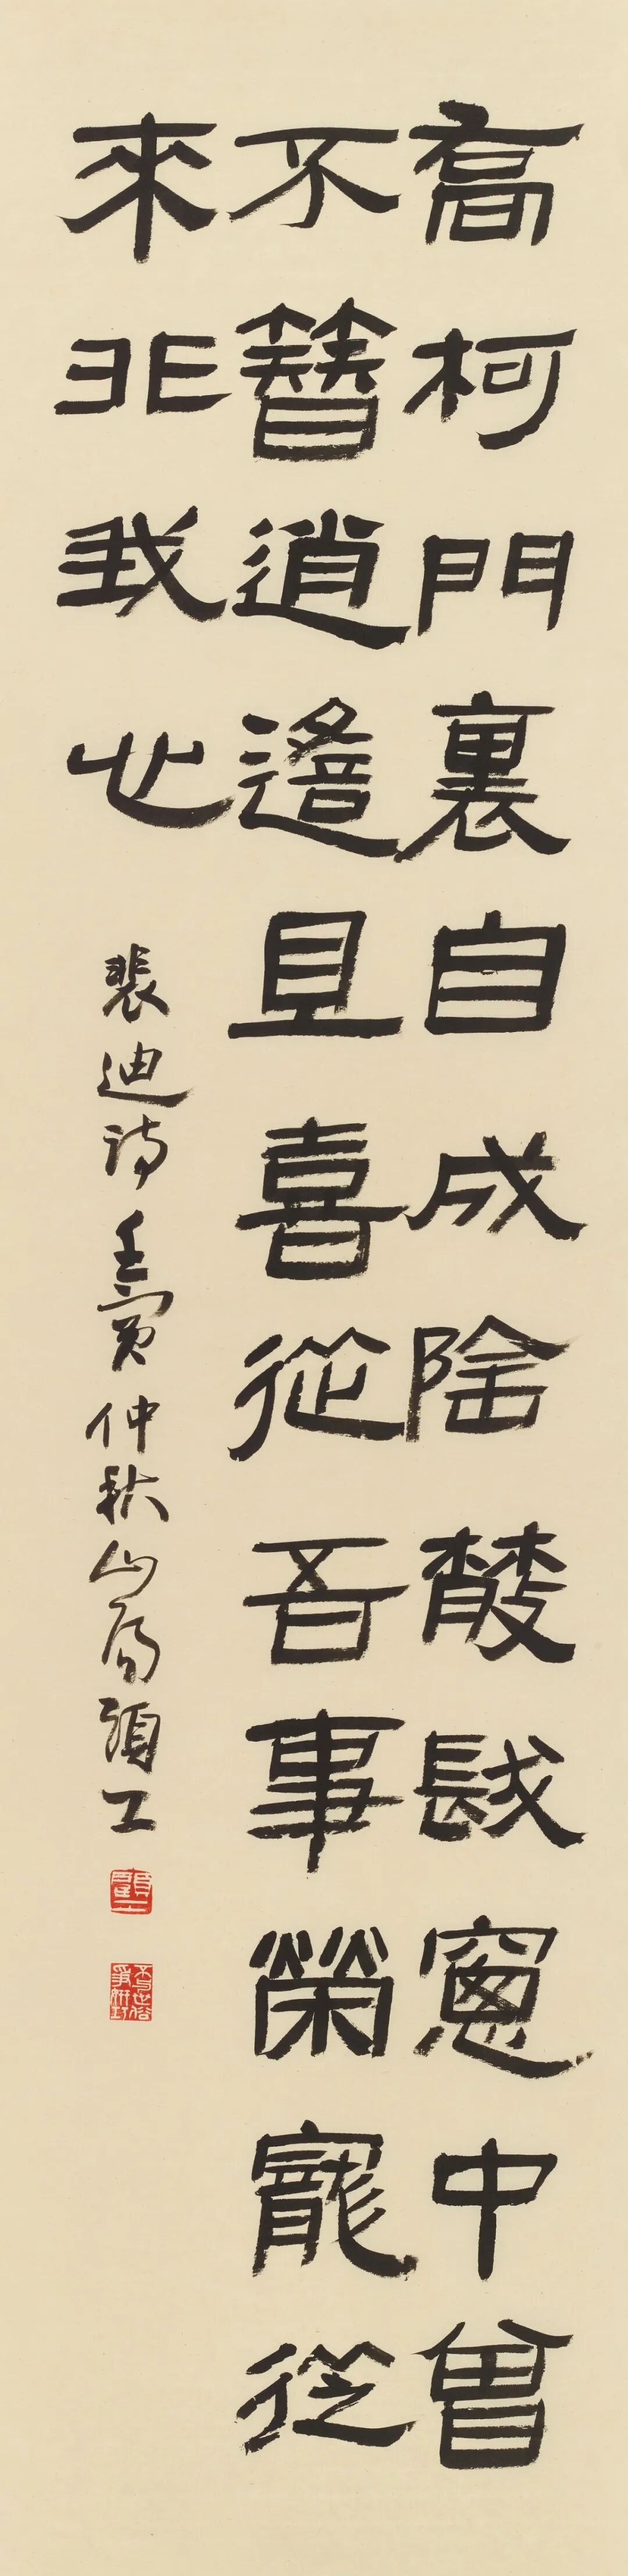 喬柯門裏自成陰散髮窻中曾
不簪逍遙且喜從吾事榮寵從
來非我心
裴迪詩 壬寅仲秋山房顧工
顧工